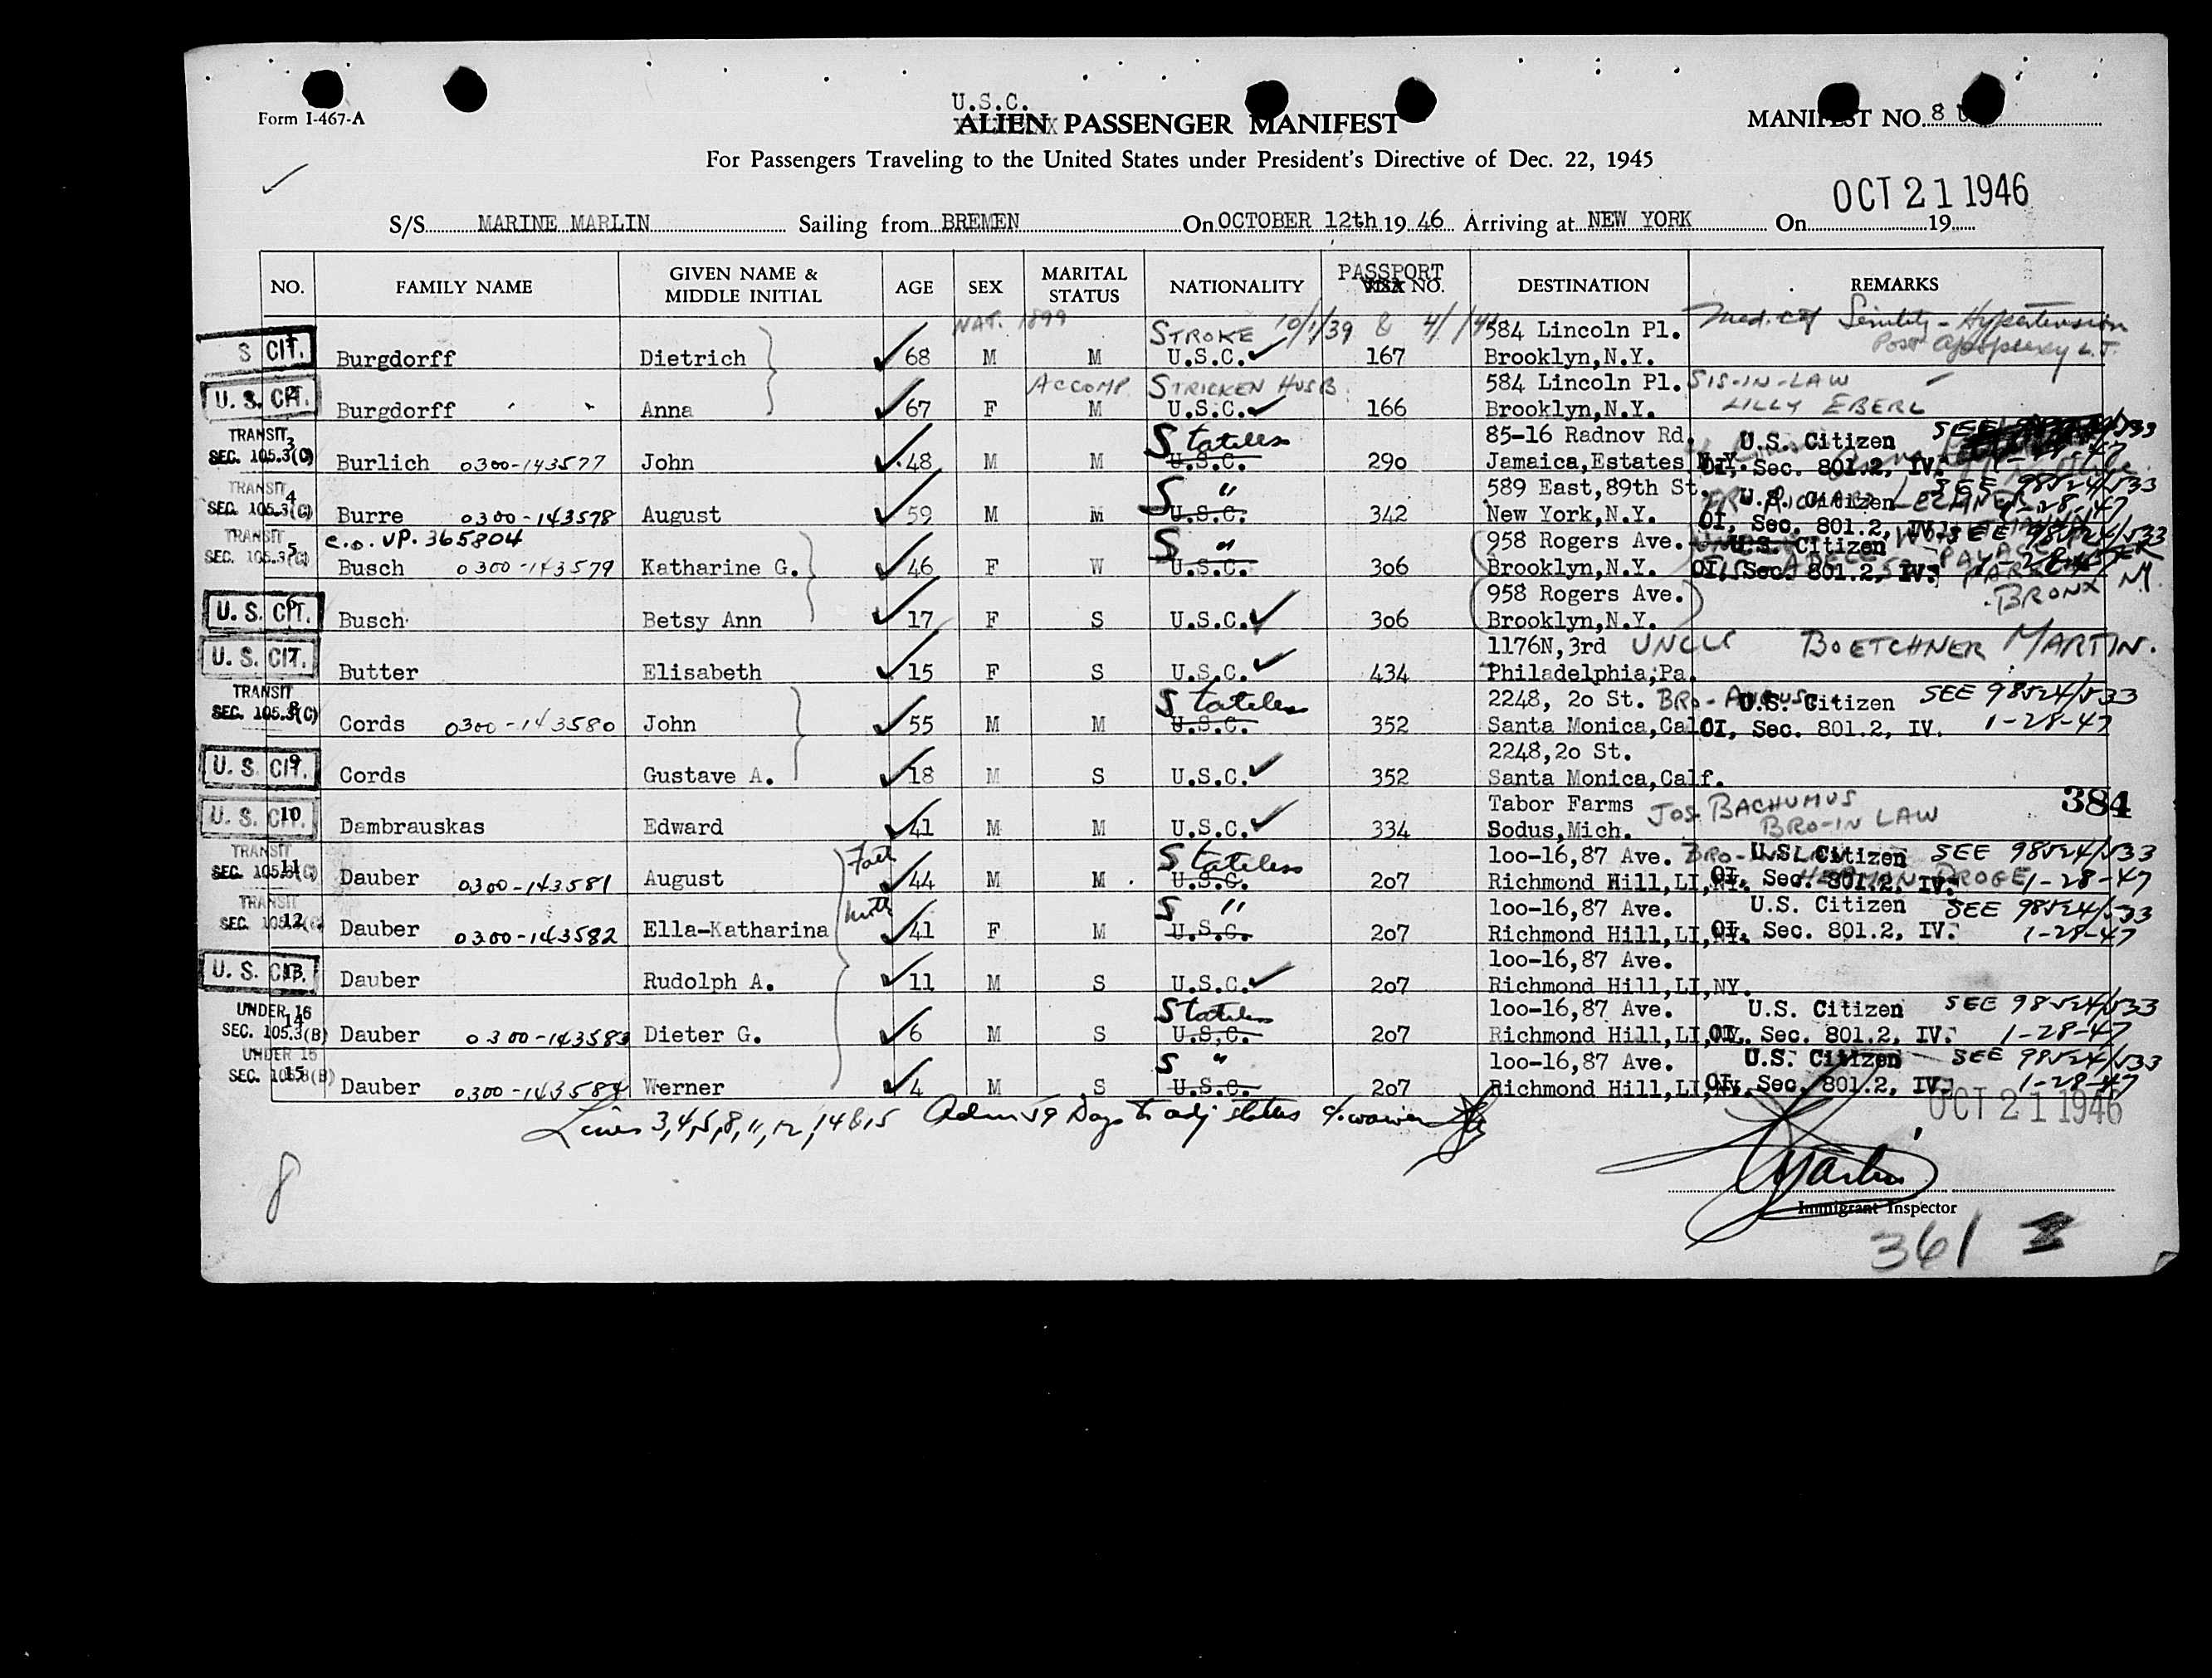 U.S.C.
Form I-467-A
ALIEN PASSENGER MANIFEST
MANIFEST NO. 8 U
For Passengers Traveling to the United States under President's Directive of Dec. 22, 1945
OCT 21 1946
S/S MARINE MARLIN Sailing from BREMEN On OCTOBER 12th 19 46 Arriving at NEW YORK On 19
NO. FAMILY NAME GIVEN NAME & MIDDLE INITIAL AGE SEX MARITAL STATUS NATIONALITY PASSPORT VISA NO. DESTINATION REMARKS
NAT. 1899 STROKE 10/1/39 & 4/ 584 Lincoln Pl. Med. Senility - Hypertension
S CIT. Burgdorff Dietrich 68 M M U.S.C. 167 Brooklyn,N.Y. Post apoplexy
ACCOMP. STRICKEN HUSB. 584 Lincoln Pl. SIS-IN-LAW
U. S. CIT. 2 Burgdorff Anna 67 F M U.S.C. 166 Brooklyn,N.Y. LILLY EBERL
TRANSIT 3 Stateless 85-16 Radnov Rd. U.S. Citizen SEE
SEC. 105.3(C) Burlich 0300-143577 John 48 M M U.S.C. 290 Jamaica,Estates N.Y. OI, Sec. 801.2, IV.
TRANSIT 4 S " 589 East,89th St. U.S. Citizen SEE 98524/533
SEC. 105.3(C) Burre 0300-143578 August 59 M M U.S.C. 342 New York,N.Y. OI, Sec. 801.2, IV. 1-28-47
TRANSIT 5 c.o. VP. 365804 S " 958 Rogers Ave. U.S. Citizen SEE 98524/533
SEC. 105.3(C) Busch 0300-143579 Katharine G. 46 F W U.S.C. 306 Brooklyn,N.Y. OI, Sec. 801.2, IV.
958 Rogers Ave. BRONX N.Y.
U. S. CIT. 6 Busch Betsy Ann 17 F S U.S.C. 306 Brooklyn,N.Y.
1176N,3rd UNCLE BOETCHNER MARTIN.
U. S. CIT. 7 Butter Elisabeth 15 F S U.S.C. 434 Philadelphia,Pa.
TRANSIT 8 Stateless 2248, 20 St. BRO- U.S. Citizen SEE 98524/533
SEC. 105.3(C) Cords 0300-143580 John 55 M M U.S.C. 352 Santa Monica,Calf. OI, Sec. 801.2, IV. 1-28-47
2248,20 St.
U. S. CIT. 9 Cords Gustave A. 18 M S U.S.C. 352 Santa Monica,Calf.
384
Tabor Farms JOS BACHUMUS
U. S. CIT. 10 Dambrauskas Edward 41 M M U.S.C. 334 Sodus,Mich. BRO-IN LAW
TRANSIT 11 Fath Stateless 100-16,87 Ave. BRO-IN LAW U.S. Citizen SEE 98524/533
SEC. 105.3(C) Dauber 0300-143581 August 44 M M U.S.C. 207 Richmond Hill,LI,NY. OI, Sec. 801.2, IV. HERMAN DROGE 1-28-47
TRANSIT 12 Moth S " 100-16,87 Ave. U.S. Citizen SEE 98524/533
SEC. 105.3(C) Dauber 0300-143582 Ella-Katharina 41 F M U.S.C. 207 Richmond Hill,LI,NY. OI, Sec. 801.2, IV. 1-28-47
100-16,87 Ave.
U. S. CIT. 13 Dauber Rudolph A. 11 M S U.S.C. 207 Richmond Hill,LI,NY.
UNDER 16 14 Stateless 100-16,87 Ave. U.S. Citizen SEE 98524/533
SEC. 105.3(B) Dauber 0300-143583 Dieter G. 6 M S U.S.C. 207 Richmond Hill,LI,NY. OI, Sec. 801.2, IV. 1-28-47
UNDER 16 15 S " 100-16,87 Ave. U.S. Citizen SEE 98524/533
SEC. 105.3(B) Dauber 0300-143584 Werner 4 M S U.S.C. 207 Richmond Hill,LI,NY. OI, Sec. 801.2, IV. 1-28-47
Lines 3,4,5,8,11,12,14&15 Adm 59 Days to adj status
OCT 21 1946
8
Immigrant Inspector
361 2